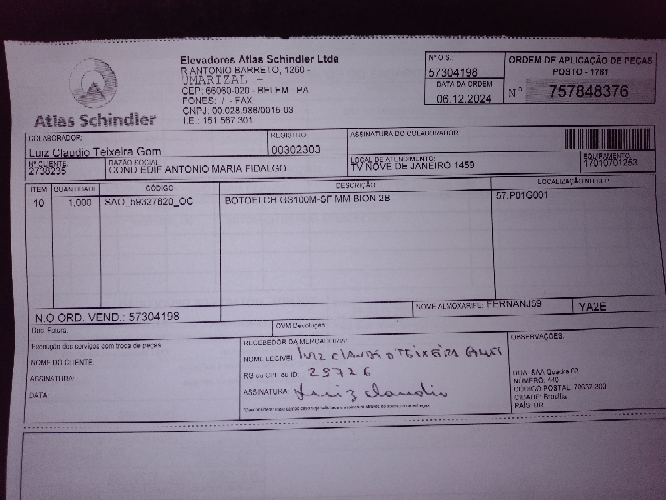 Atlas Schindler
Elevadores Atlas Schindler Ltda
R ANTONIO BARRETO, 1260 -
UMARIZAL -
CEP: 66060-020 - BELEM - PA
FONES: / - FAX
CNPJ: 00.028.986/0015-03
I.E.: 151 567 301
Nº O.S.:
57304198
DATA DA ORDEM
06.12.2024
ORDEM DE APLICAÇÃO DE PEÇAS
POSTO - 1781
Nº 757848376
COLABORADOR:
Luiz Claudio Teixeira Gom
REGISTRO
00302303
ASSINATURA DO COLABORADOR
Nº CLIENTE:
2738235
RAZÃO SOCIAL
COND EDIF ANTONIO MARIA FIDALGO
LOCAL DE ATENDIMENTO:
TV NOVE DE JANEIRO 1459
EQUIPAMENTO:
17010701253
ITEM QUANTIDADE CÓDIGO DESCRIÇÃO
10 1,000 SAO_59327620_OC BOTOELCH GS100M-SF MM BION 2B 57.P01G001
N.O ORD. VEND.: 57304198
NOME ALMOXARIFE: FERNANJ59
YA2E
OVM Devolução
Execução dos serviços com troca de peças
NOME DO CLIENTE:
ASSINATURA:
DATA
RECEBEDOR DA MERCADORIA:
NOME LEGÍVEL: LUIZ CLAUDIO TEIXEIRA
RG ou CPF ou ID: 29726
ASSINATURA: Luiz Claudio
OBSERVAÇÕES:
RUA: SAA Quadra 03
NÚMERO: 440
CÓDIGO POSTAL: 70632-300
CIDADE: Brasília
PAÍS: BR